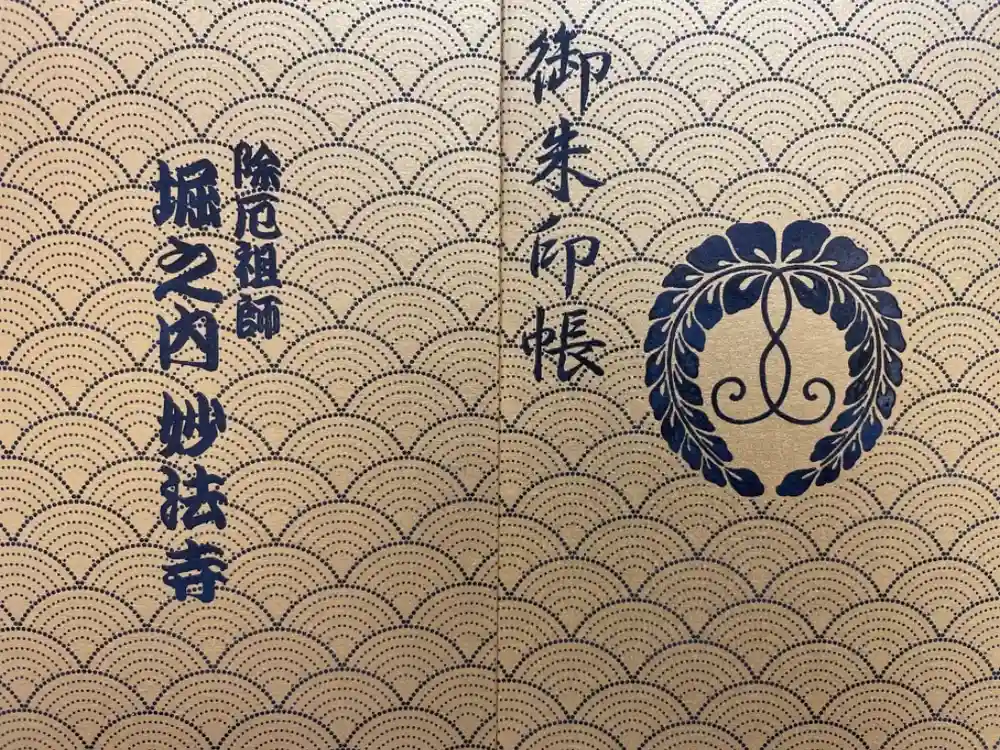 御朱印帳
除厄祖師
堀之内 妙法寺